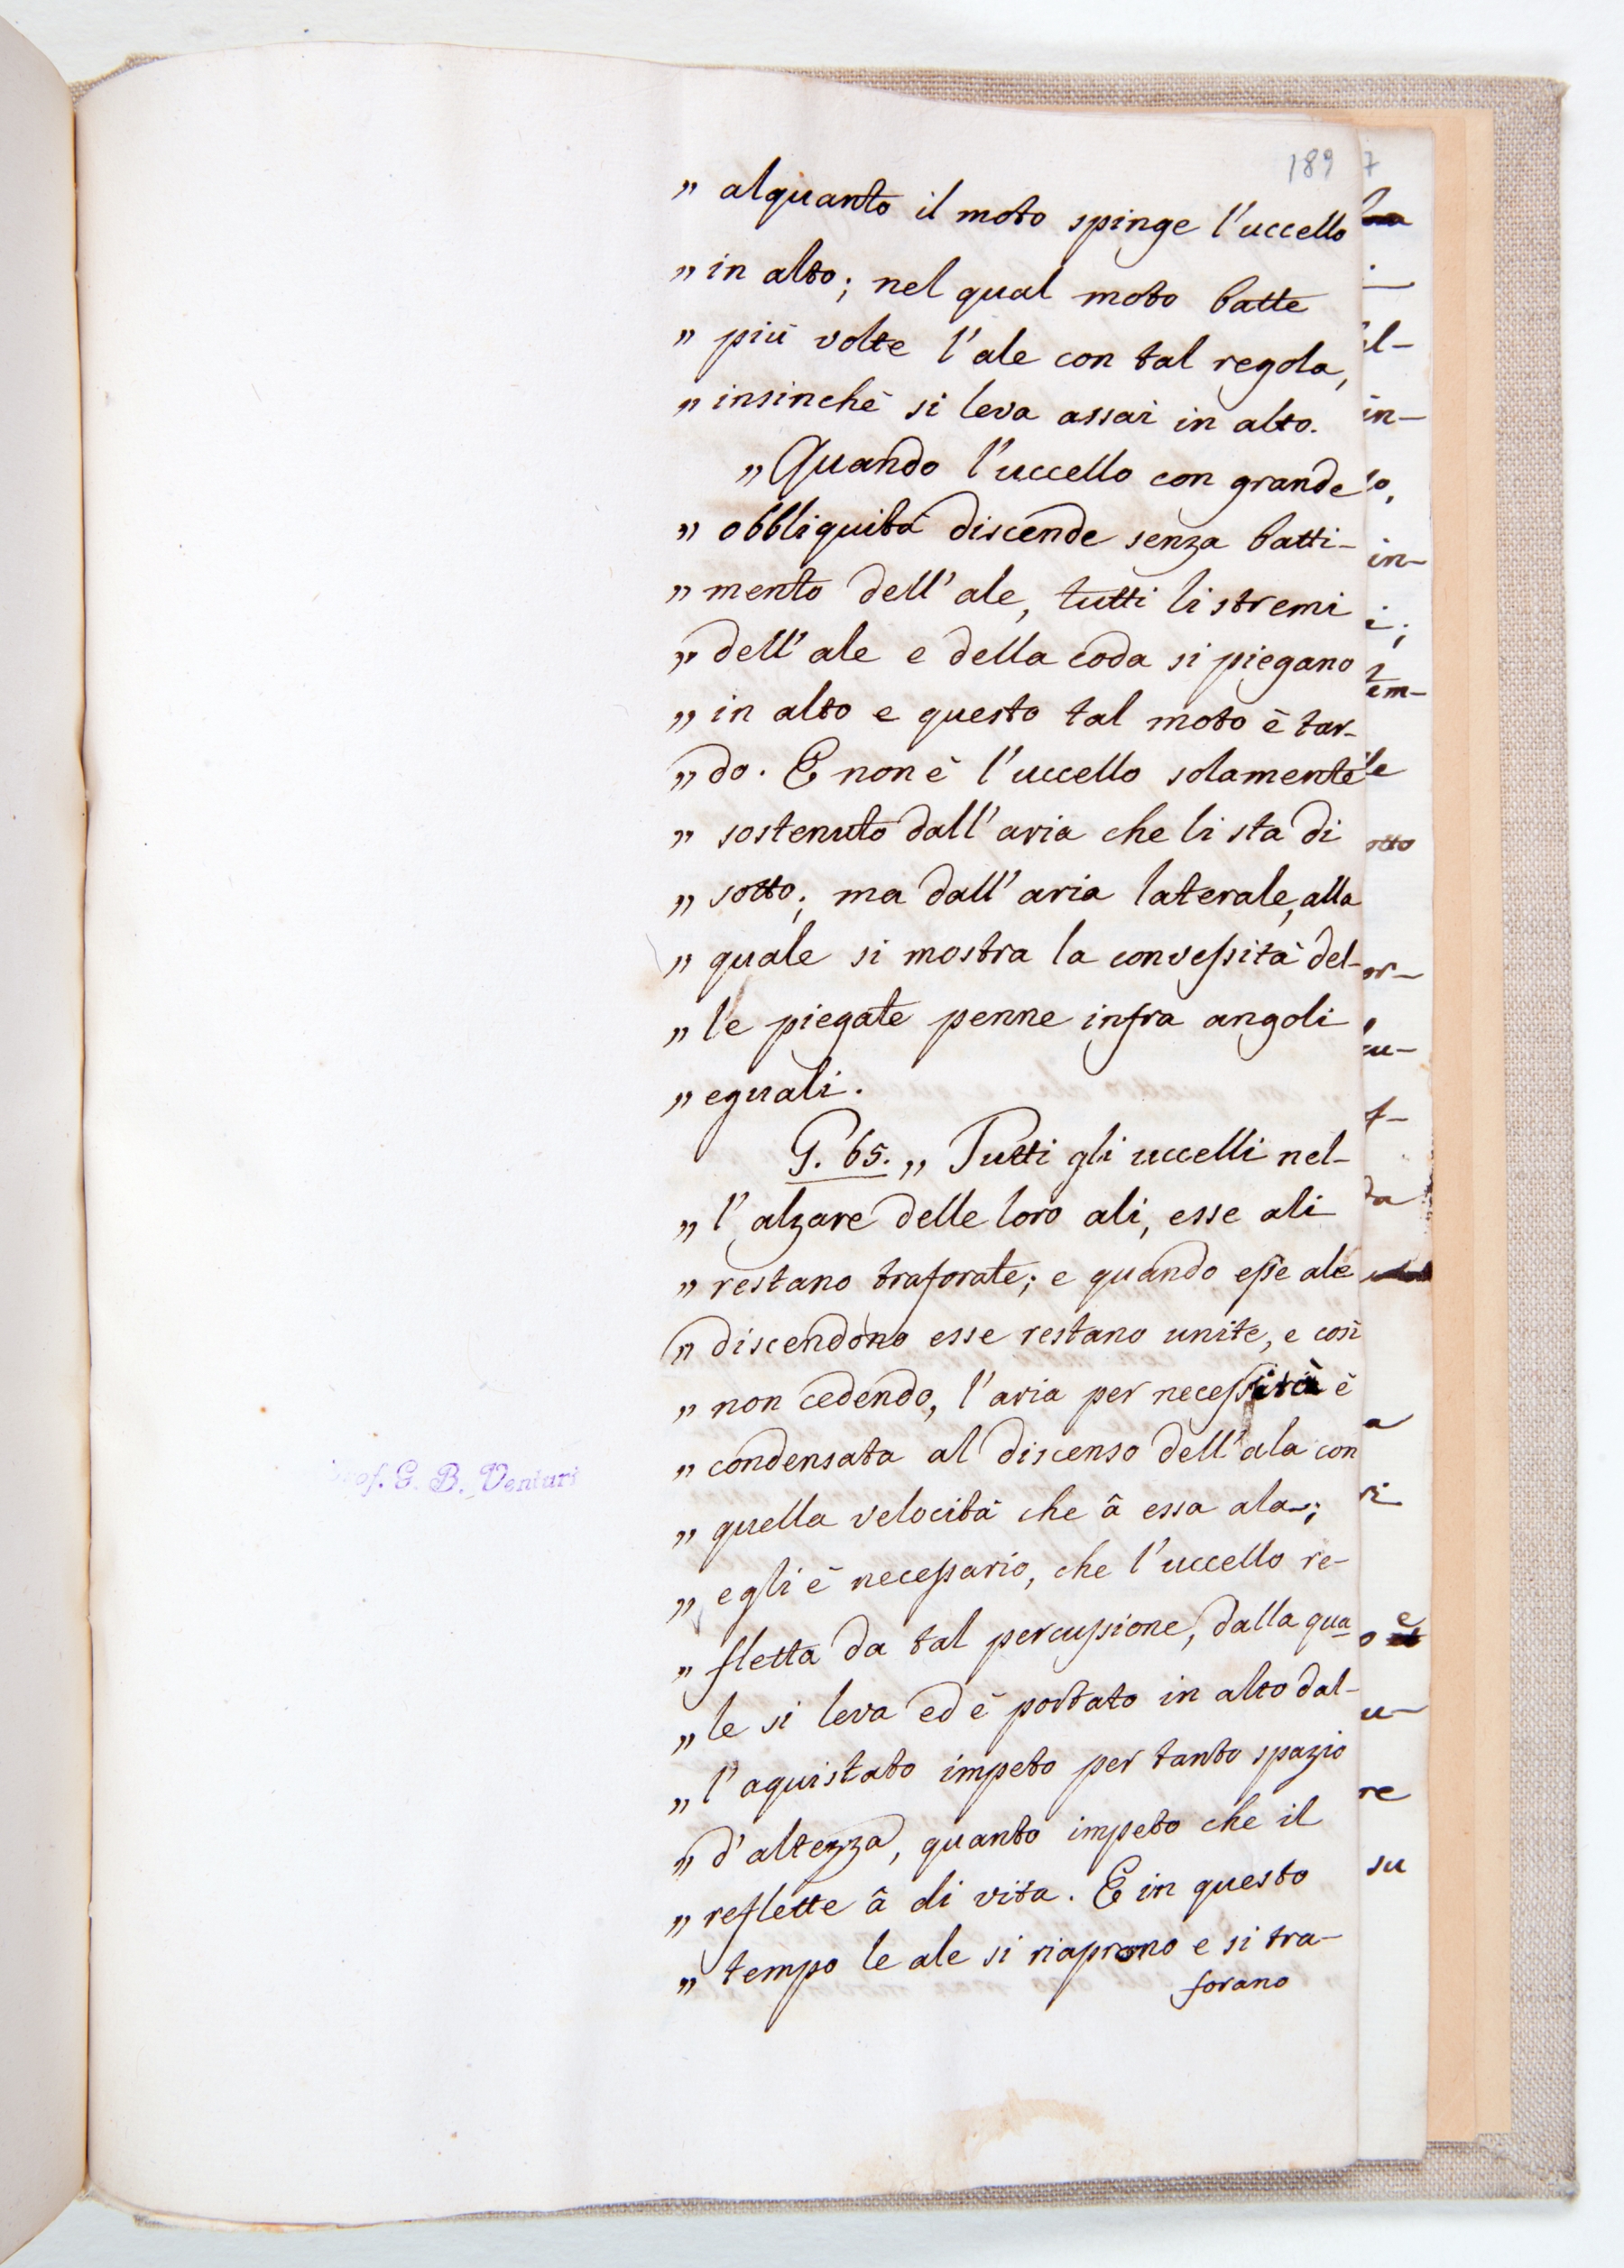 189
7
„ alquanto il moto spinge l'uccello
„ in alto; nel qual moto batte
„ più volte l'ale con tal regola,
„ insinchè si leva assai in alto.
„ Quando l'uccello con grande
„ obbliquità discende senza batti-
„ mento dell'ale, tutti li stremi
„ dell'ale e della coda si piegano
„ in alto e questo tal moto è tar-
„ do. E non è l'uccello solamente
„ sostenuto dall'aria che li sta di
„ sotto; ma dall'aria laterale, alla
„ quale si mostra la convessità del-
„ le piegate penne infra angoli
„ eguali.
G. 65. „ Tutti gli uccelli nel-
„ l'alzare delle loro ali, esse ali
„ restano traforate; e quando esse ale
„ discendono esse restano unite, e così
„ non cedendo, l'aria per necessità è
„ condensata al discenso dell'ala con
„ quella velocità che â essa ala;
„ egli è necessario, che l'uccello re-
„ fletta da tal percussione, dalla qua
„ le si leva ed è portato in alto dal-
„ l'aquistato impeto per tanto spazio
„ d'altezza, quanto impeto che il
„ reflette â di vita. E in questo
„ tempo le ale si riaprono e si tra-
forano
G. B. Venturi